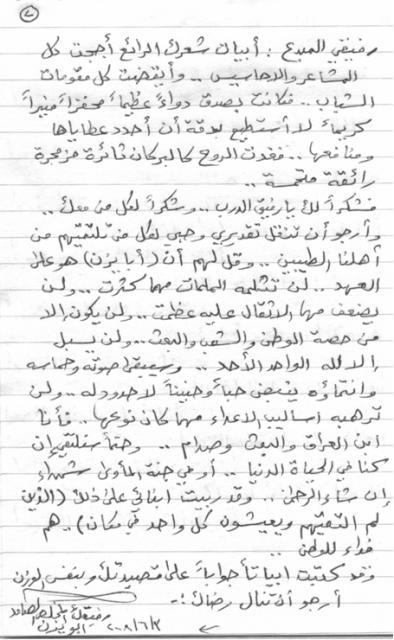 ٢
رفيقي المبدع : أبيات شعرك الرائع أججت كل
المشاعر والاحاسيس .. وأيقضت كل مقومات
الشباب .. فكانت بصدق دواءً عظيماً محفزاً منيراً
كريماً لا أستطيع بدقة أن أحدد عطاياها
ومنافعها .. فغدت الروح كالبركان ثائرة مزمجرة
رائقة ملتحمة ..
فشكراً لك يا رفيق الدرب .. وشكراً لكل من معك ..
وأرجو أن تنقل تقديري وحبي لكل من تلتقيهم من
أهلنا الطيبين .. وقل لهم أن (أبا يزن) هو على
العهد .. لن تثلمه الملمات مهما كثرت .. ولن
يضعف مهما الاثقال عليه عظمت .. ولن يكون إلا
من حصة الوطن والشعب والبعث .. ولن يسبل
إلا لله الواحد الأحد .. وسيبقى صوته وحماسه
وانتماؤه يفيض حباً وحنيناً لا حدود له .. ولن
ترهبه اساليب الاعداء مهما كان نوعها .. فأنا
ابن العراق والبعث وصدام .. وحتماً سنلتقي إن
كنا في الحياة الدنيا .. أو في جنة المأوى شهداء
إن شاء الرحمن .. وقد ربيت ابنائي على ذلك (الذين
لم التقيهم ويعيشون كل واحد في مكان) .. هم
فداء للوطن ..
وقد كتبت ابياتاً جواباً على قصيدتك وبنفس الوزن
أرجو أن تنال رضاك :-
رفيقك المخلص الصامد
أبو يزن